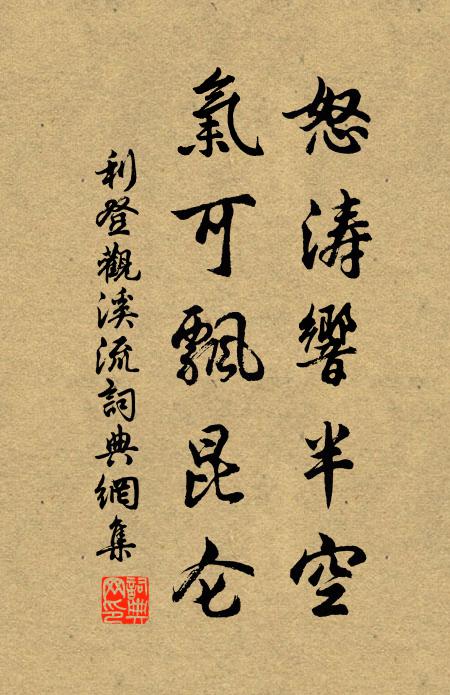 怒涛響半空
氣可飄昆仑
利登觀溪流詞典網集
詞典网印